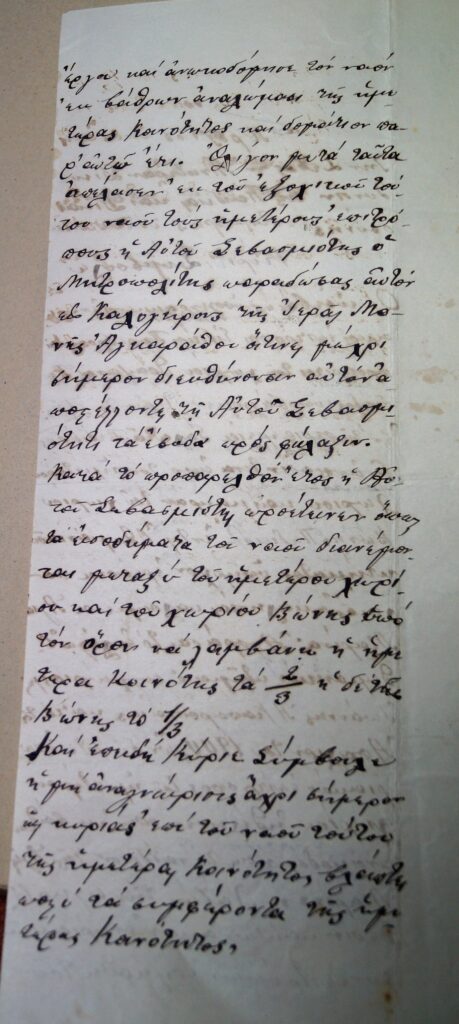 ἔργα καὶ ἀνῳκοδόμησε τὸν ναὸν
ἐκ βάθρων ἀναλώμασι τῆς ἡμε
τέρας Κοινότητος καὶ δωμάτιον πα-
ρ' αὐτῷ ἔτι. Ὀλίγον μετὰ ταῦτα
ἀπέλασεν ἐκ τοῦ ἐξοχικοῦ τού
του ναοῦ τοὺς ἡμετέρους ἐπιτρό
πους ἡ Αὐτοῦ Σεβασμιότης ὁ
Μητροπολίτης παραδώσας αὐτὸν
εἰς Καλογήρους τῆς Ἱερᾶς Μο-
νῆς Ἀγκαράθου οἵτινες μέχρι
σήμερον διευθύνουσιν αὐτὸν
ἀποστέλλοντες τῇ Αὐτοῦ Σεβασμι
ότητι τὰ ἔσοδα πρὸς φύλαξιν.
Κατὰ τὸ προπαρελθὸν ἔτος ἡ Αὐ-
τοῦ Σεβασμιότης προέτεινεν ὅπως
τὰ εἰσοδήματα τοῦ ναοῦ διανέμων
ται μεταξὺ τοῦ ἡμετέρου χωρί
ου καὶ τοῦ χωρίου Βώνης ὑπὸ
τὸν ὅρον νὰ λαμβάνῃ ἡ ἡμε
τέρα Κοινότης τὰ 2/3 ἡ δὲ τῆς
Βώνης τὸ 1/3
Καὶ ἐπειδὴ Κύριε Σύμβουλε
ἡ μὴ ἀναγνώρισις ἄχρι σήμερον
τῆς κυριάς ἐπὶ τοῦ ναοῦ τούτου
τῆς ἡμετέρας Κοινότητος βλάπτει
πολὺ τὰ συμφέροντα τῆς ἡμε
τέρας Κοινότητος,